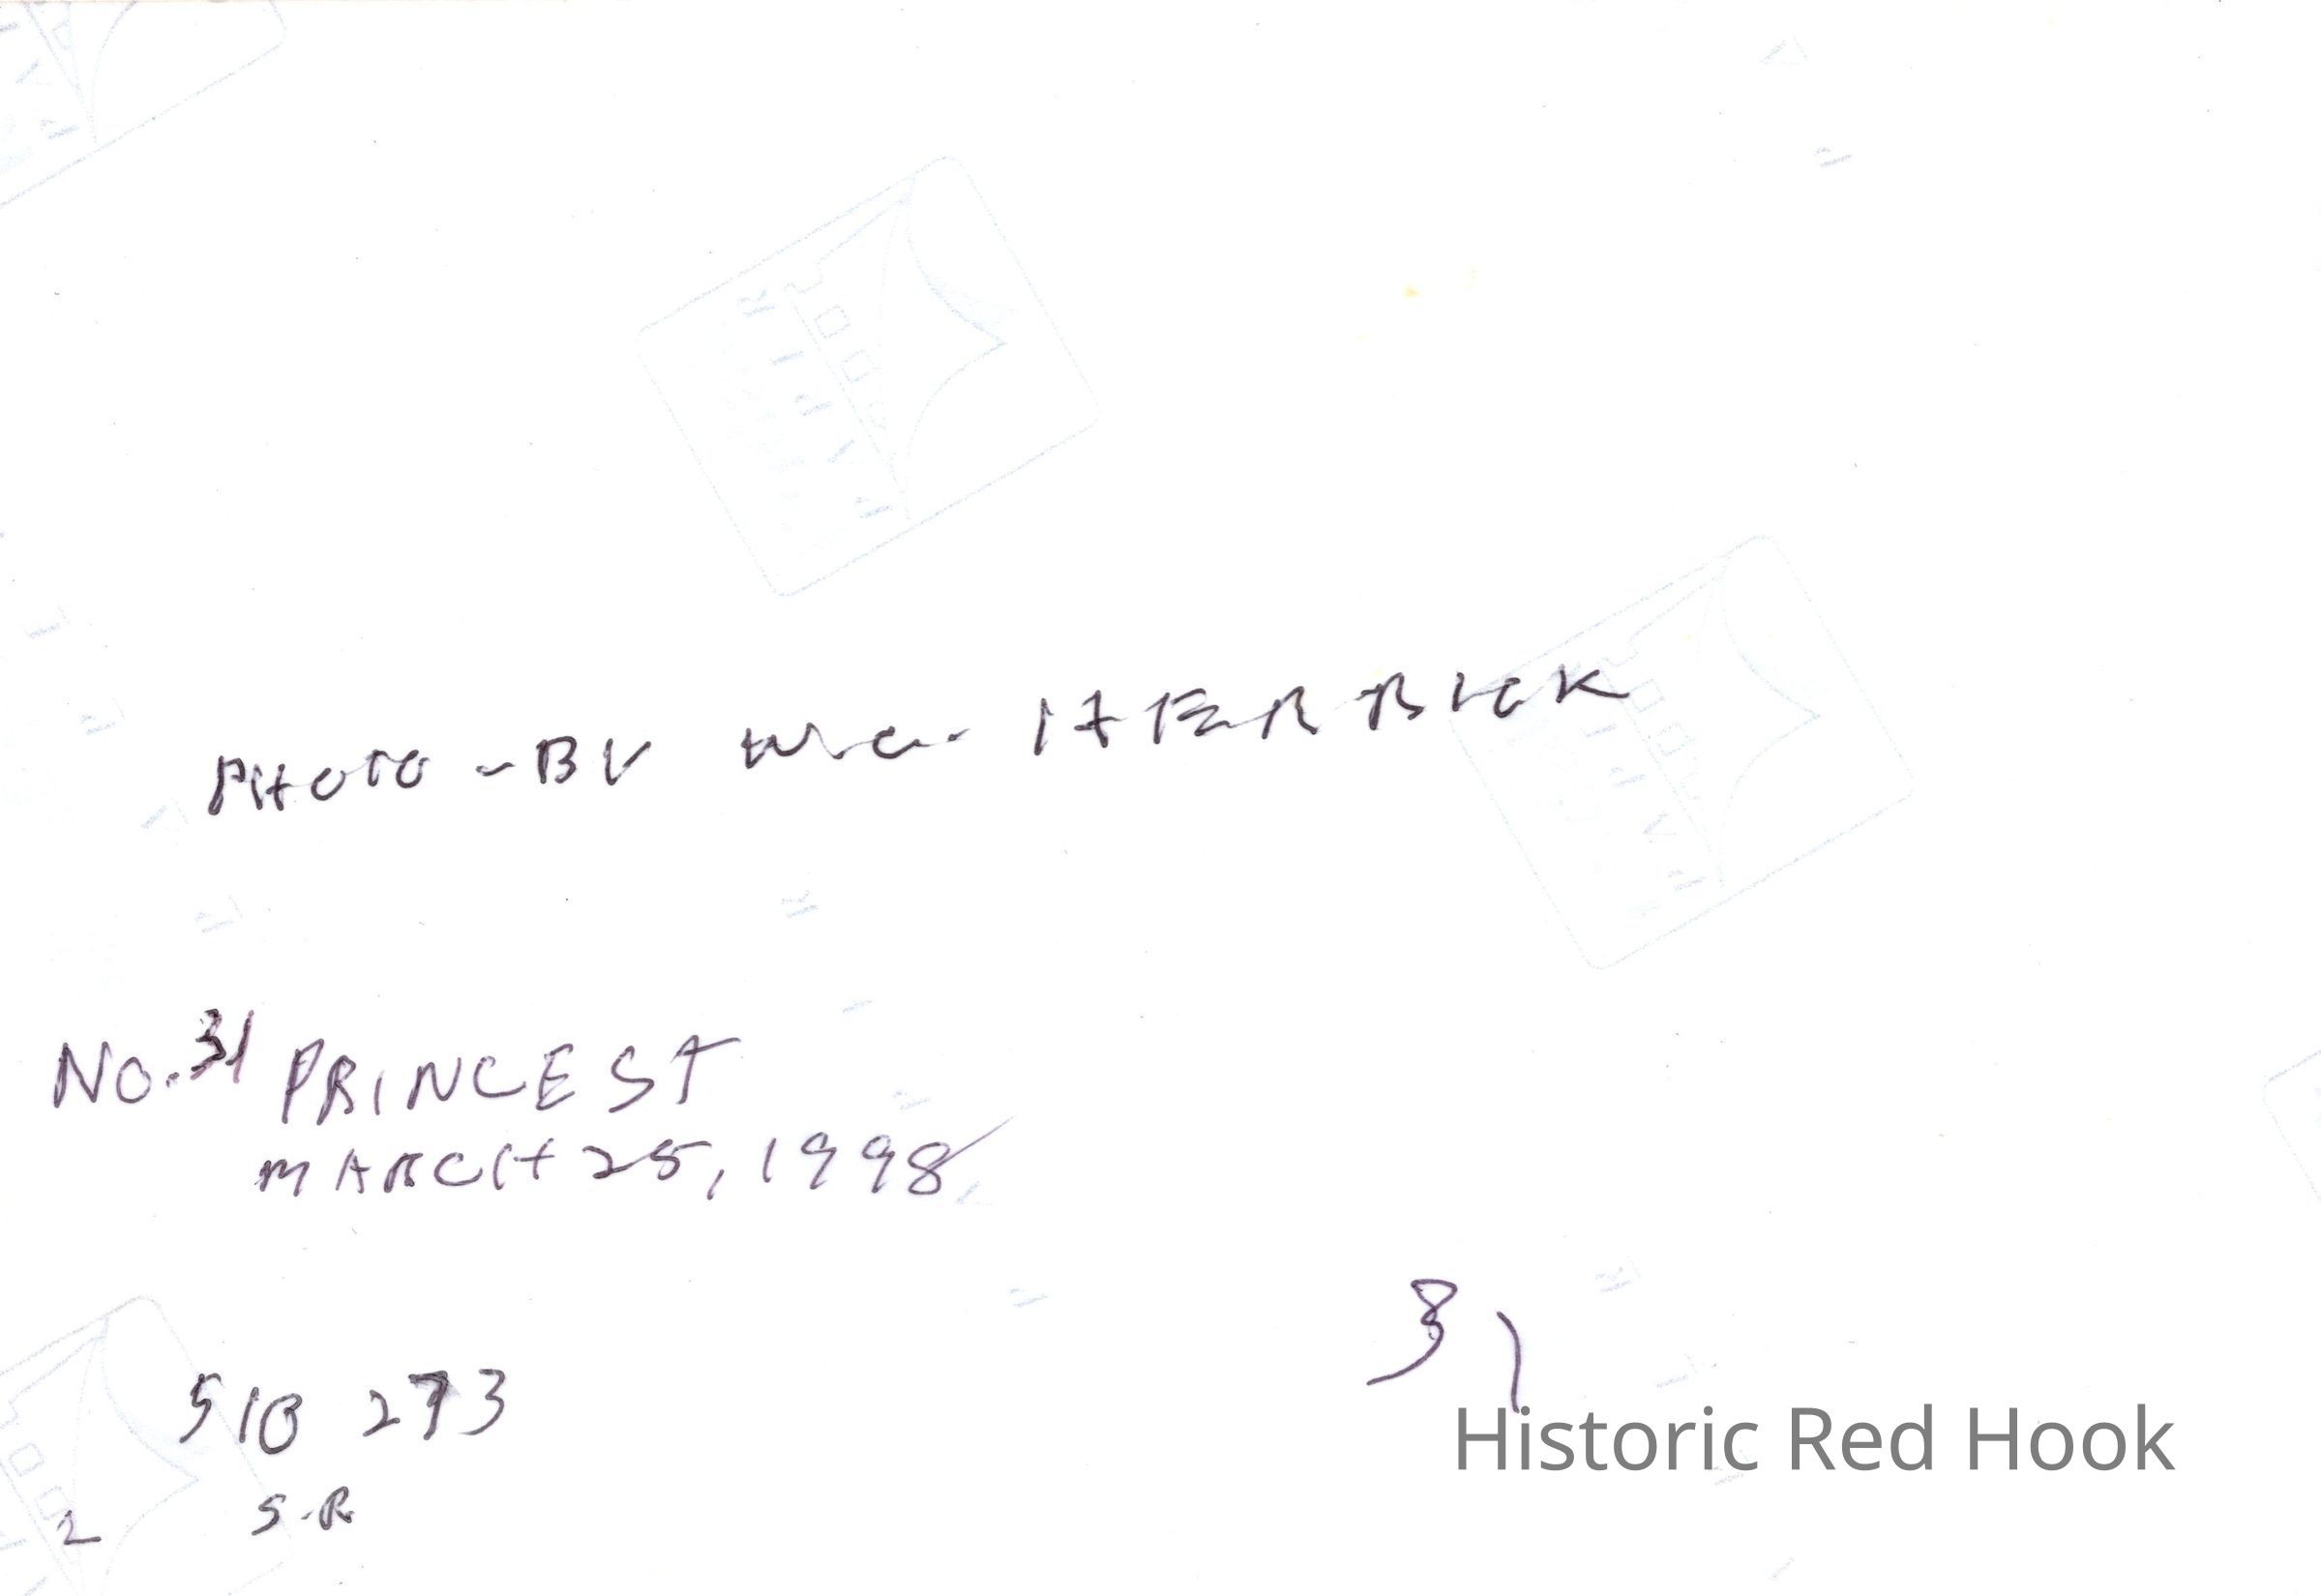 PHOTO - BY W.C. HERRICK
NO. 31 PRINCE ST
MARCH 25, 1998
31
510 273
Historic Red Hook
2 S.R